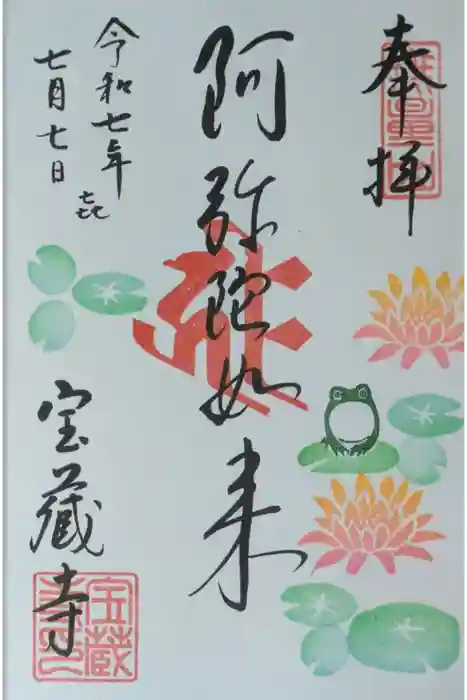 奉拝
阿弥陀如来
令和七年
七月七日
㐂
宝蔵寺
宝蔵